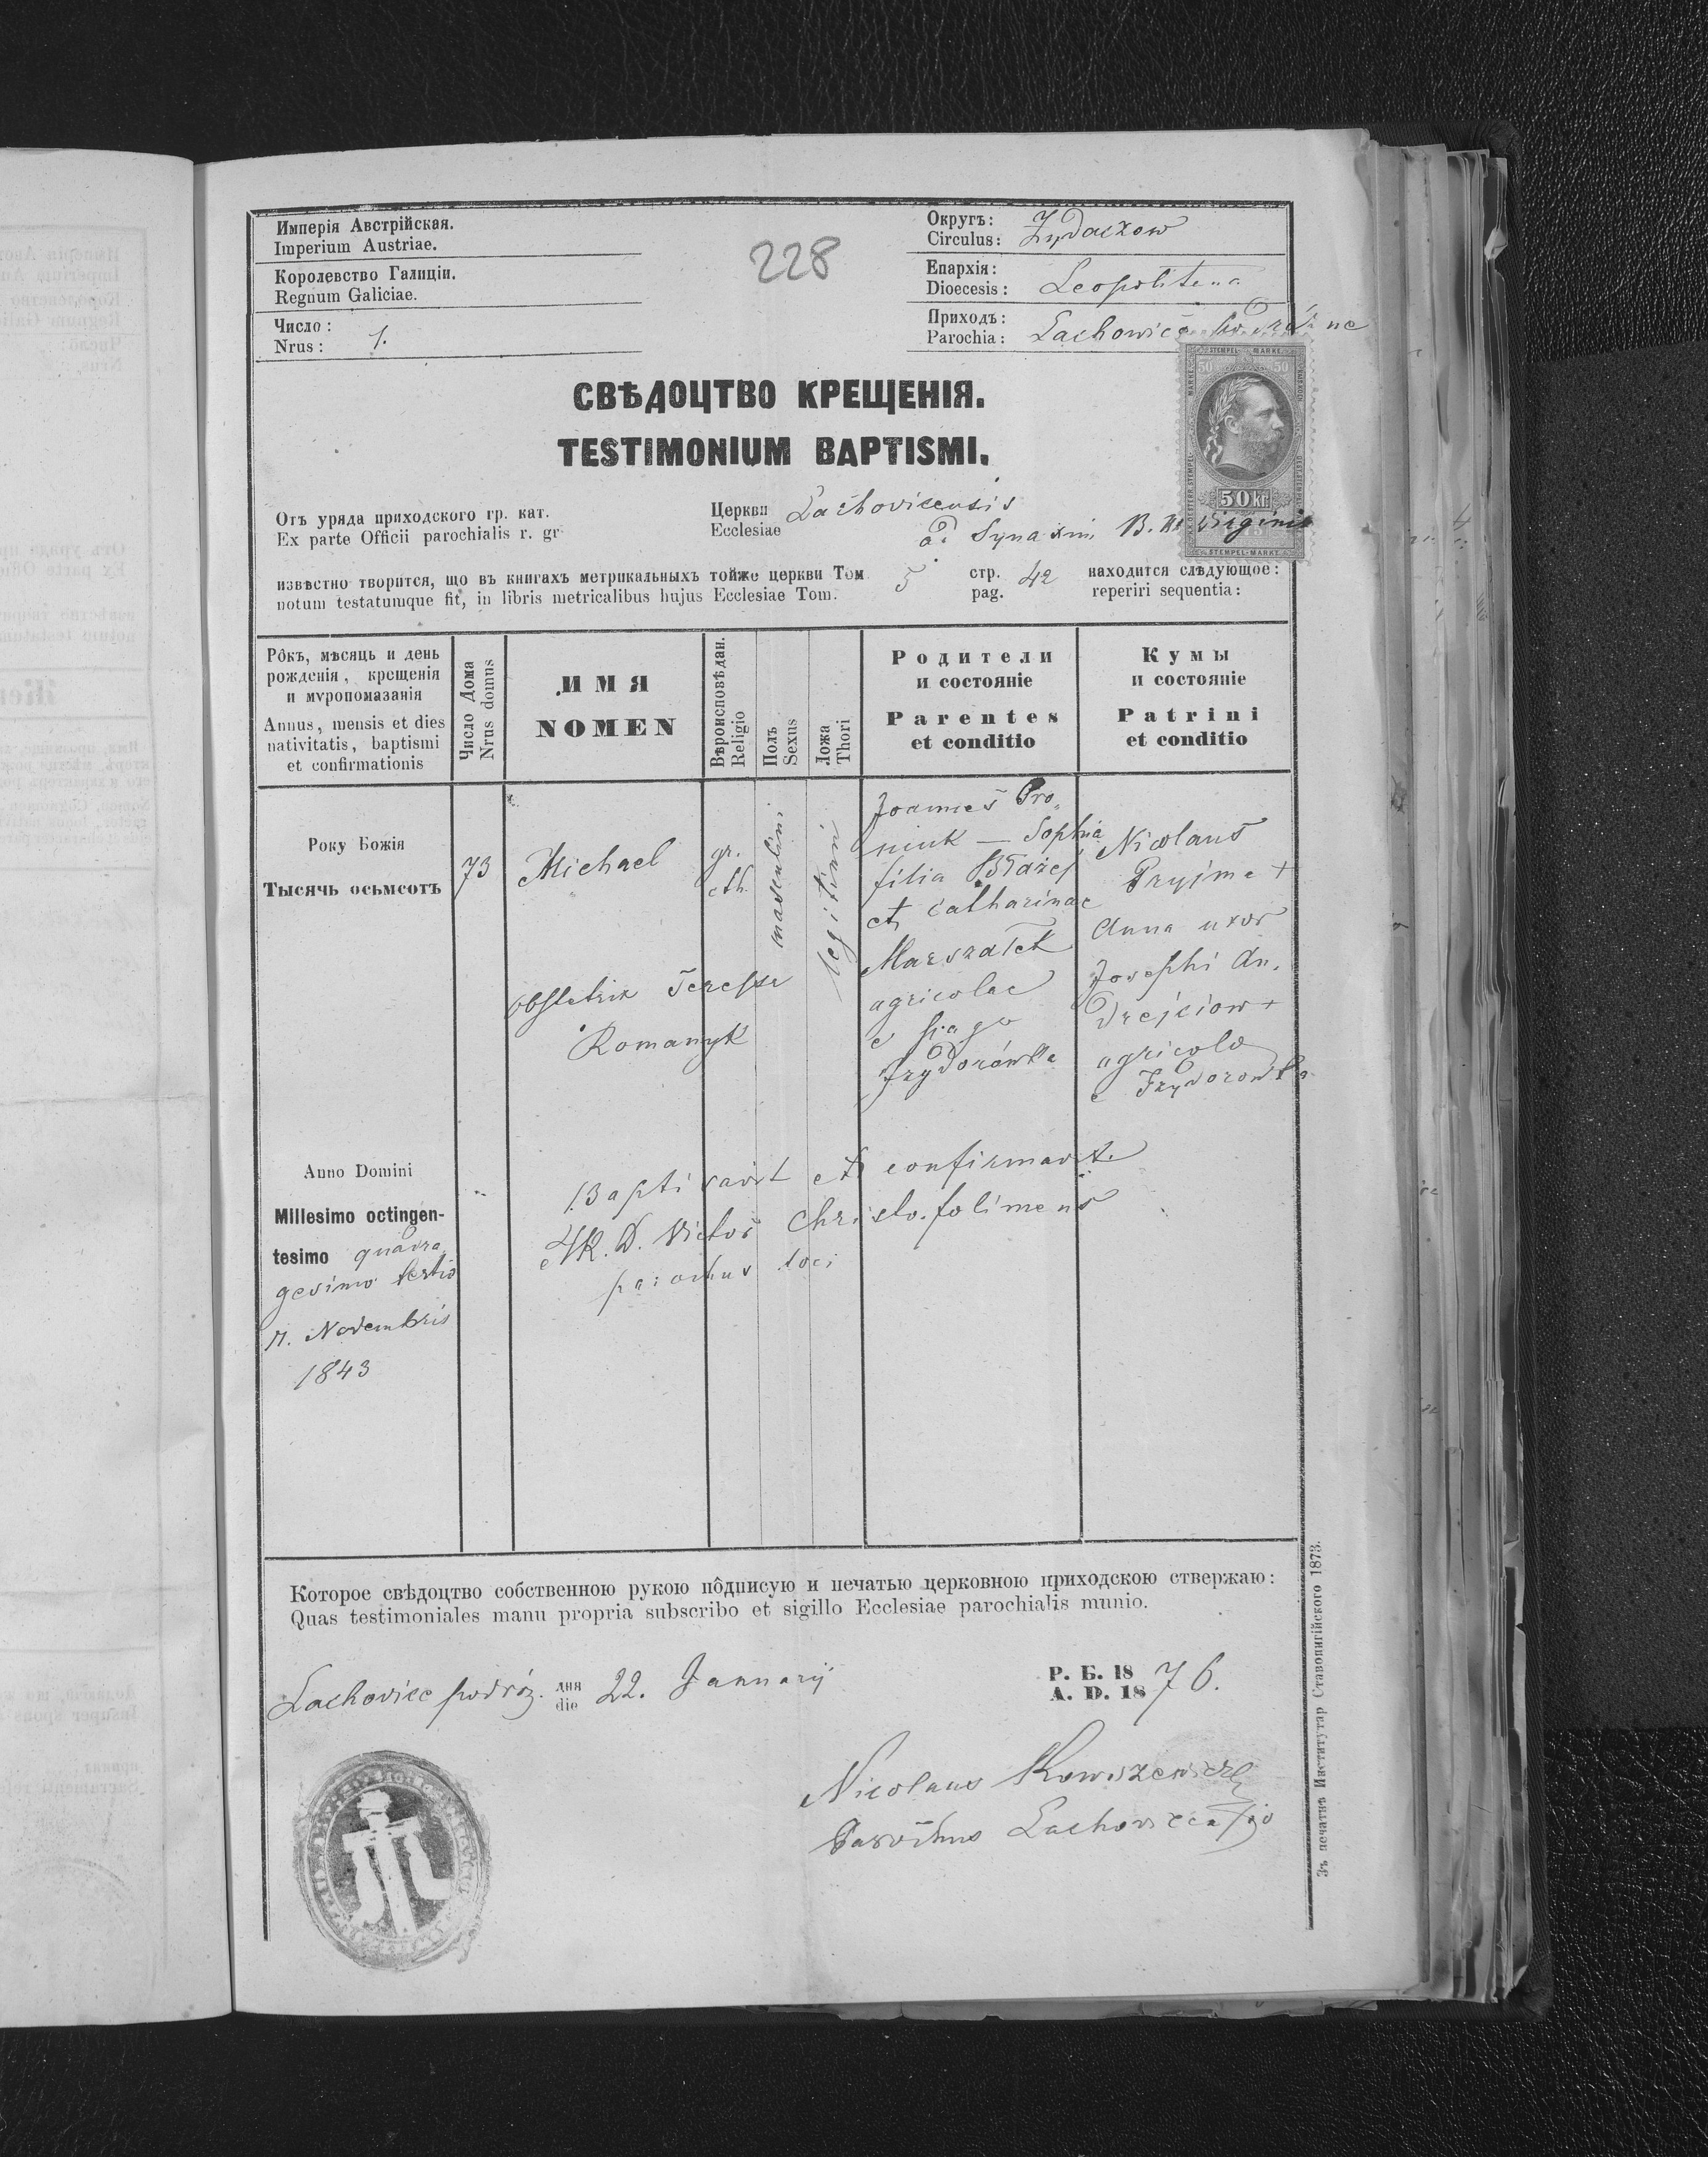 Имперія Австрійская.
Imperium Austriae.
Королевство Галиціи.
Regnum Galiciae.
Число:
Nrus: 1.
228
Округъ:
Circulus: Żydaczow
Епархія:
Dioecesis: Leopolitana
Приходъ:
Parochia: Lachowice
СВѢДОЦТВО КРЕЩЕНІЯ.
TESTIMONIUM BAPTISMI.
STEMPEL MARKE
50 50
50 kr.
STEMPEL-MARKE
Отъ уряда приходского гр. кат. Церкви
Ex parte Officii parochialis r. gr Ecclesiae Lachovicensis
ad Synaxim B. M. Virginis
извѣстно творится, що въ книгахъ метрикальныхъ тойже церкви Том 5 стр. 42 находится слѣдующое:
notum testatumque fit, in libris metricalibus hujus Ecclesiae Tom. pag. reperiri sequentia:
Рôкъ, мѣсяць и день
рожденія, крещенія
и мѵропомазанія
Annus, mensis et dies
nativitatis, baptismi
et confirmationis
Число Дома
Nrus domus
ИМЯ
NOMEN
Вѣроисповѣдан.
Religio
Полъ
Sexus
Ложа
Thori
Родители
и состояніе
Parentes
et conditio
Кумы
и состояніе
Patrini
et conditio
Року Божія
Тысячь осьмсотъ
73
Michael
obstetrix Teressa
Romanyk
gr.
cth.
masculini
legitimi
Joannes Pro
niuk — Sophia
filia Błażej
et Catharinae
Marszałek
agricolae
e pago
Izydorówka
Nicolaus
Pryjma +
Anna uxor
Josephi An.
drejciow +
agricolae
e Izydorowka
Anno Domini
Millesimo octingen-
tesimo quadra
gesimo tertio
Novembris
1843
Baptisavit et confirmavit
A.R.D. Victor
parochus loci
Которое свѣдоцтво собственною рукою пôдписую и печатью церковною приходскою ствержаю:
Quas testimoniales manu propria subscribo et sigillo Ecclesiae parochialis munio.
Lachovice podróż. дня
die 22. Januarij
Р. Б. 18
A. D. 1876.
Nicolaus
Parochus
Зъ печатнѣ Институтар Ставропигійского 1873.